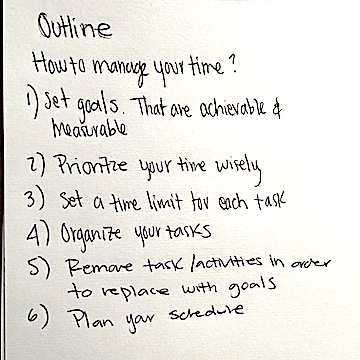 Outline
How to manage your time?
1) Set goals. That are achievable &
measurable
2) Prioritize your time wisely
3) Set a time limit for each task
4) Organize your tasks
5) Remove task/activities in order
to replace with goals
6) Plan your schedule